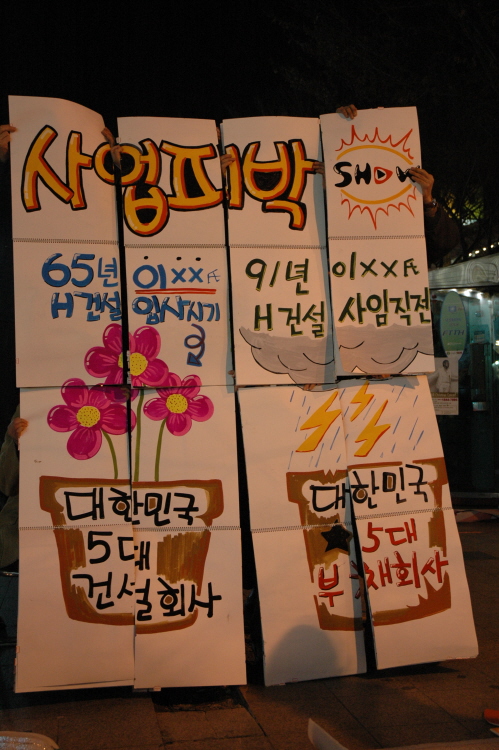 사업피박 SHOW
65년 이xx夫
H건설 입사시기
91년 이xx夫
H건설 사임직전
대한민국
5대
건설회사
대한민국
5대
부채회사